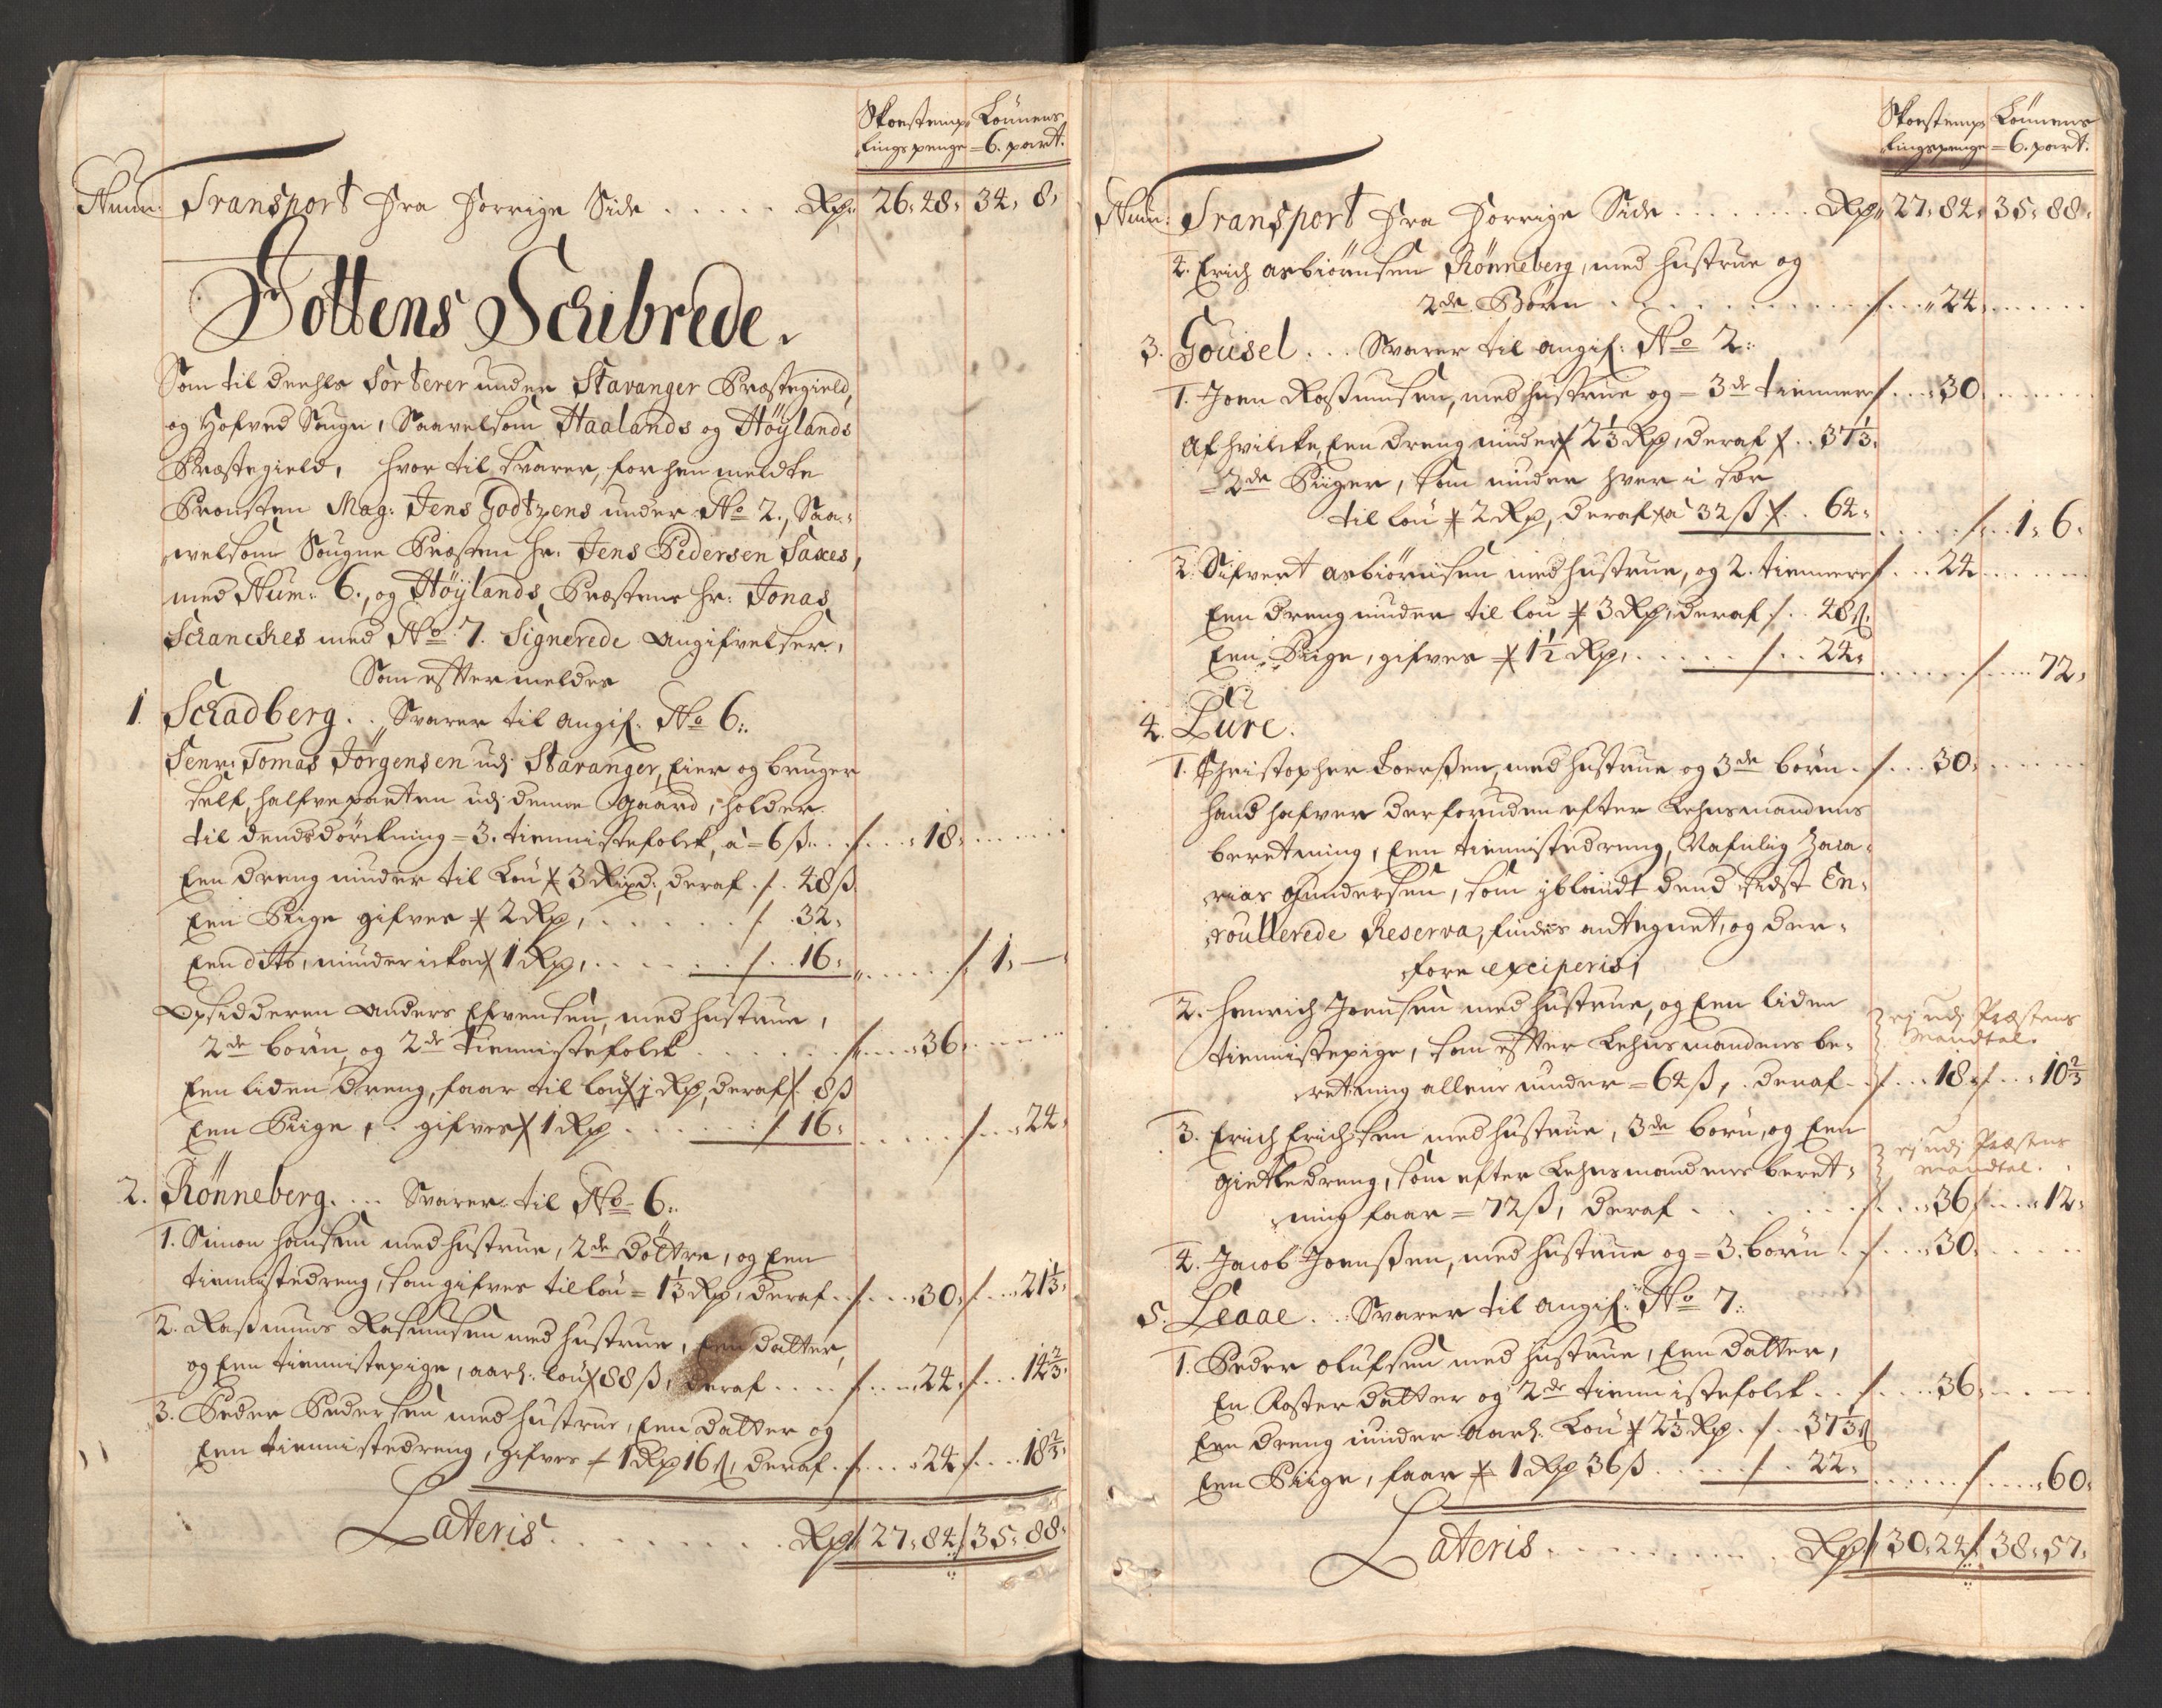 Skoestemp- Lønnens
lingspenge =6. part.
Num: Transport fra Forrige Side . . . . . Rd: 26. 48. 34. 8.
Gottens Schibrede.
Som til deehls Sorterer under Stavanger Præstegield,
og Hofved Sougn, Saavelsom Haalands og Höylands
Præstegield, hvor til svarer, forhen meldte
Provsten Mag: Jens Godtzens under No 2., Saa-
velsom Sougne Præsten Hr: Jens Pedersen Saxes,
med Num: 6., og Höylands Præstens Hr: Jonas
Schanckes med No 7. Signerede Angifvelser,
Som efter meldes
1. Schadberg . . Svarer til angif: No 6:
Senr: Tomas Jörgensen udj Stavanger, Eier og bruger
self, halfve parten udj denne Gaard, holder
til dends dörckning = 3. tiennistefolck, a = 6 ß . . / . . . 18.
Een dreng nyder til Løn # 3 Rixd:, deraf . / . 48 ß
Een Piige gifves # 2 Rd, . . . . . / . 32.
Een dito, nyder ickon # 1 Rd, . . . . / . . 16. . . . . . / 1. —
Opsidderen Anders Efvensen, med hustrue,
2de börn, og 2de tiennistefolck . . . . . . / . . . 36.
Een liden dreng, faar til løn # ½ Rd, deraf / . 8 ß
Een Piige, . gifves # 1 Rd . . . . . / 16. . . . . . / . . . 24.
2. Rönneberg. . . . Svarer til No 6:
1. Simon Hansen med hustrue, 2de Döttre, og Een
tiennistedreng, som gifves til løn = 1⅓ Rd, deraf . / . . . 30. / . . . 21⅓.
2. Rasmuus Rasmusen med hustrue, Een datter,
og Een tiennistepige, aarl: løn # 88 ß, deraf . . . . / . . . 24. / . . . 14⅔.
3. Peder Pedersen med hustrue, Een datter og
Een tiennistedreng, gifves # 1 Rd 16 ß, deraf . / . . . . 24 / . . . 18⅔.
Lateris . . . . . . . Rd / 27. 84 / 35. 88.
Skoestemp- Lønnens
lingspenge =6. part.
Num: Transport fra Forrige Side . . . . . . . Rd 27. 84. 35. 88.
4. Erich Asbiörnsen Rönneberg, med hustrue og
2de Börn . . . . . . . . . . / . . . 24.
3. Gousel . . . Svarer til angif: No 2:
1. Joen Rasmusen, med hustrue og = 3de tiennere / . . . 30
Af hvilcke, Een dreng nyder # 2⅓ Rd, deraf / . . 37⅓.
= 2de Piiger, som nyder hver i sær
til løn # 2 Rd, deraf # a 32 ß / . . 64. . . . . / . . 1. 6.
2. Sifvert Asbiörnsen med hustrue, og 2. tiennere / . . . 24
Een dreng nyder til løn # 3 Rd, deraf / . . 48 ß.
Een Piige, gifves # 1½ Rd, . . . . . / . . 24. . . . . / . . . . 72.
4. Lure.
1. Christopher Toerßen, med hustrue og 3de börn . / . . . 30.
Hand hafver derforuden efter Lehnsmandens
beretning, Een tiennistedreng, Nafnlig Zaca-
rias Gundersen, som jblandt dend sidst En-
roullerede Reserva, findes antegnet, og der-
fore exciperis;
2. Henrich Joensen med hustrue, og Een liden
tiennistepige, som efter Lehnsmandens be-
retning allene nyder = 64 ß, . deraf . . / . . . 18. / . . . 10⅔
ej udj Præstens
Mandtal.
3. Erich Erichsen med hustrue, 3de börn, og Een
Gietledreng, som efter Lehnsmandens beret-
ning faar = 72 ß, deraf . . . . . . / . . . 36 / . . . . 12.
ej udj Præstens
Mandtal.
4. Jacob Joenßen, med hustrue og = 3. börn . / . . . 30.
5. Leaae . . . Svarer til angif: No 7:
1. Peder Olufsen med hustrue, Een datter,
En Foster datter og 2de tiennistefolck . . / . . . . 36.
Een dreng nyder aarl: Løn # 2⅓ Rd . / . . 37⅓ ß
Een Piige, faar # 1 Rd 36 ß . . . . . / . . 22. . . . . . / . . . . 60.
Lateris . . . . . . . . . Rd / 30. 24 / 38. 57.